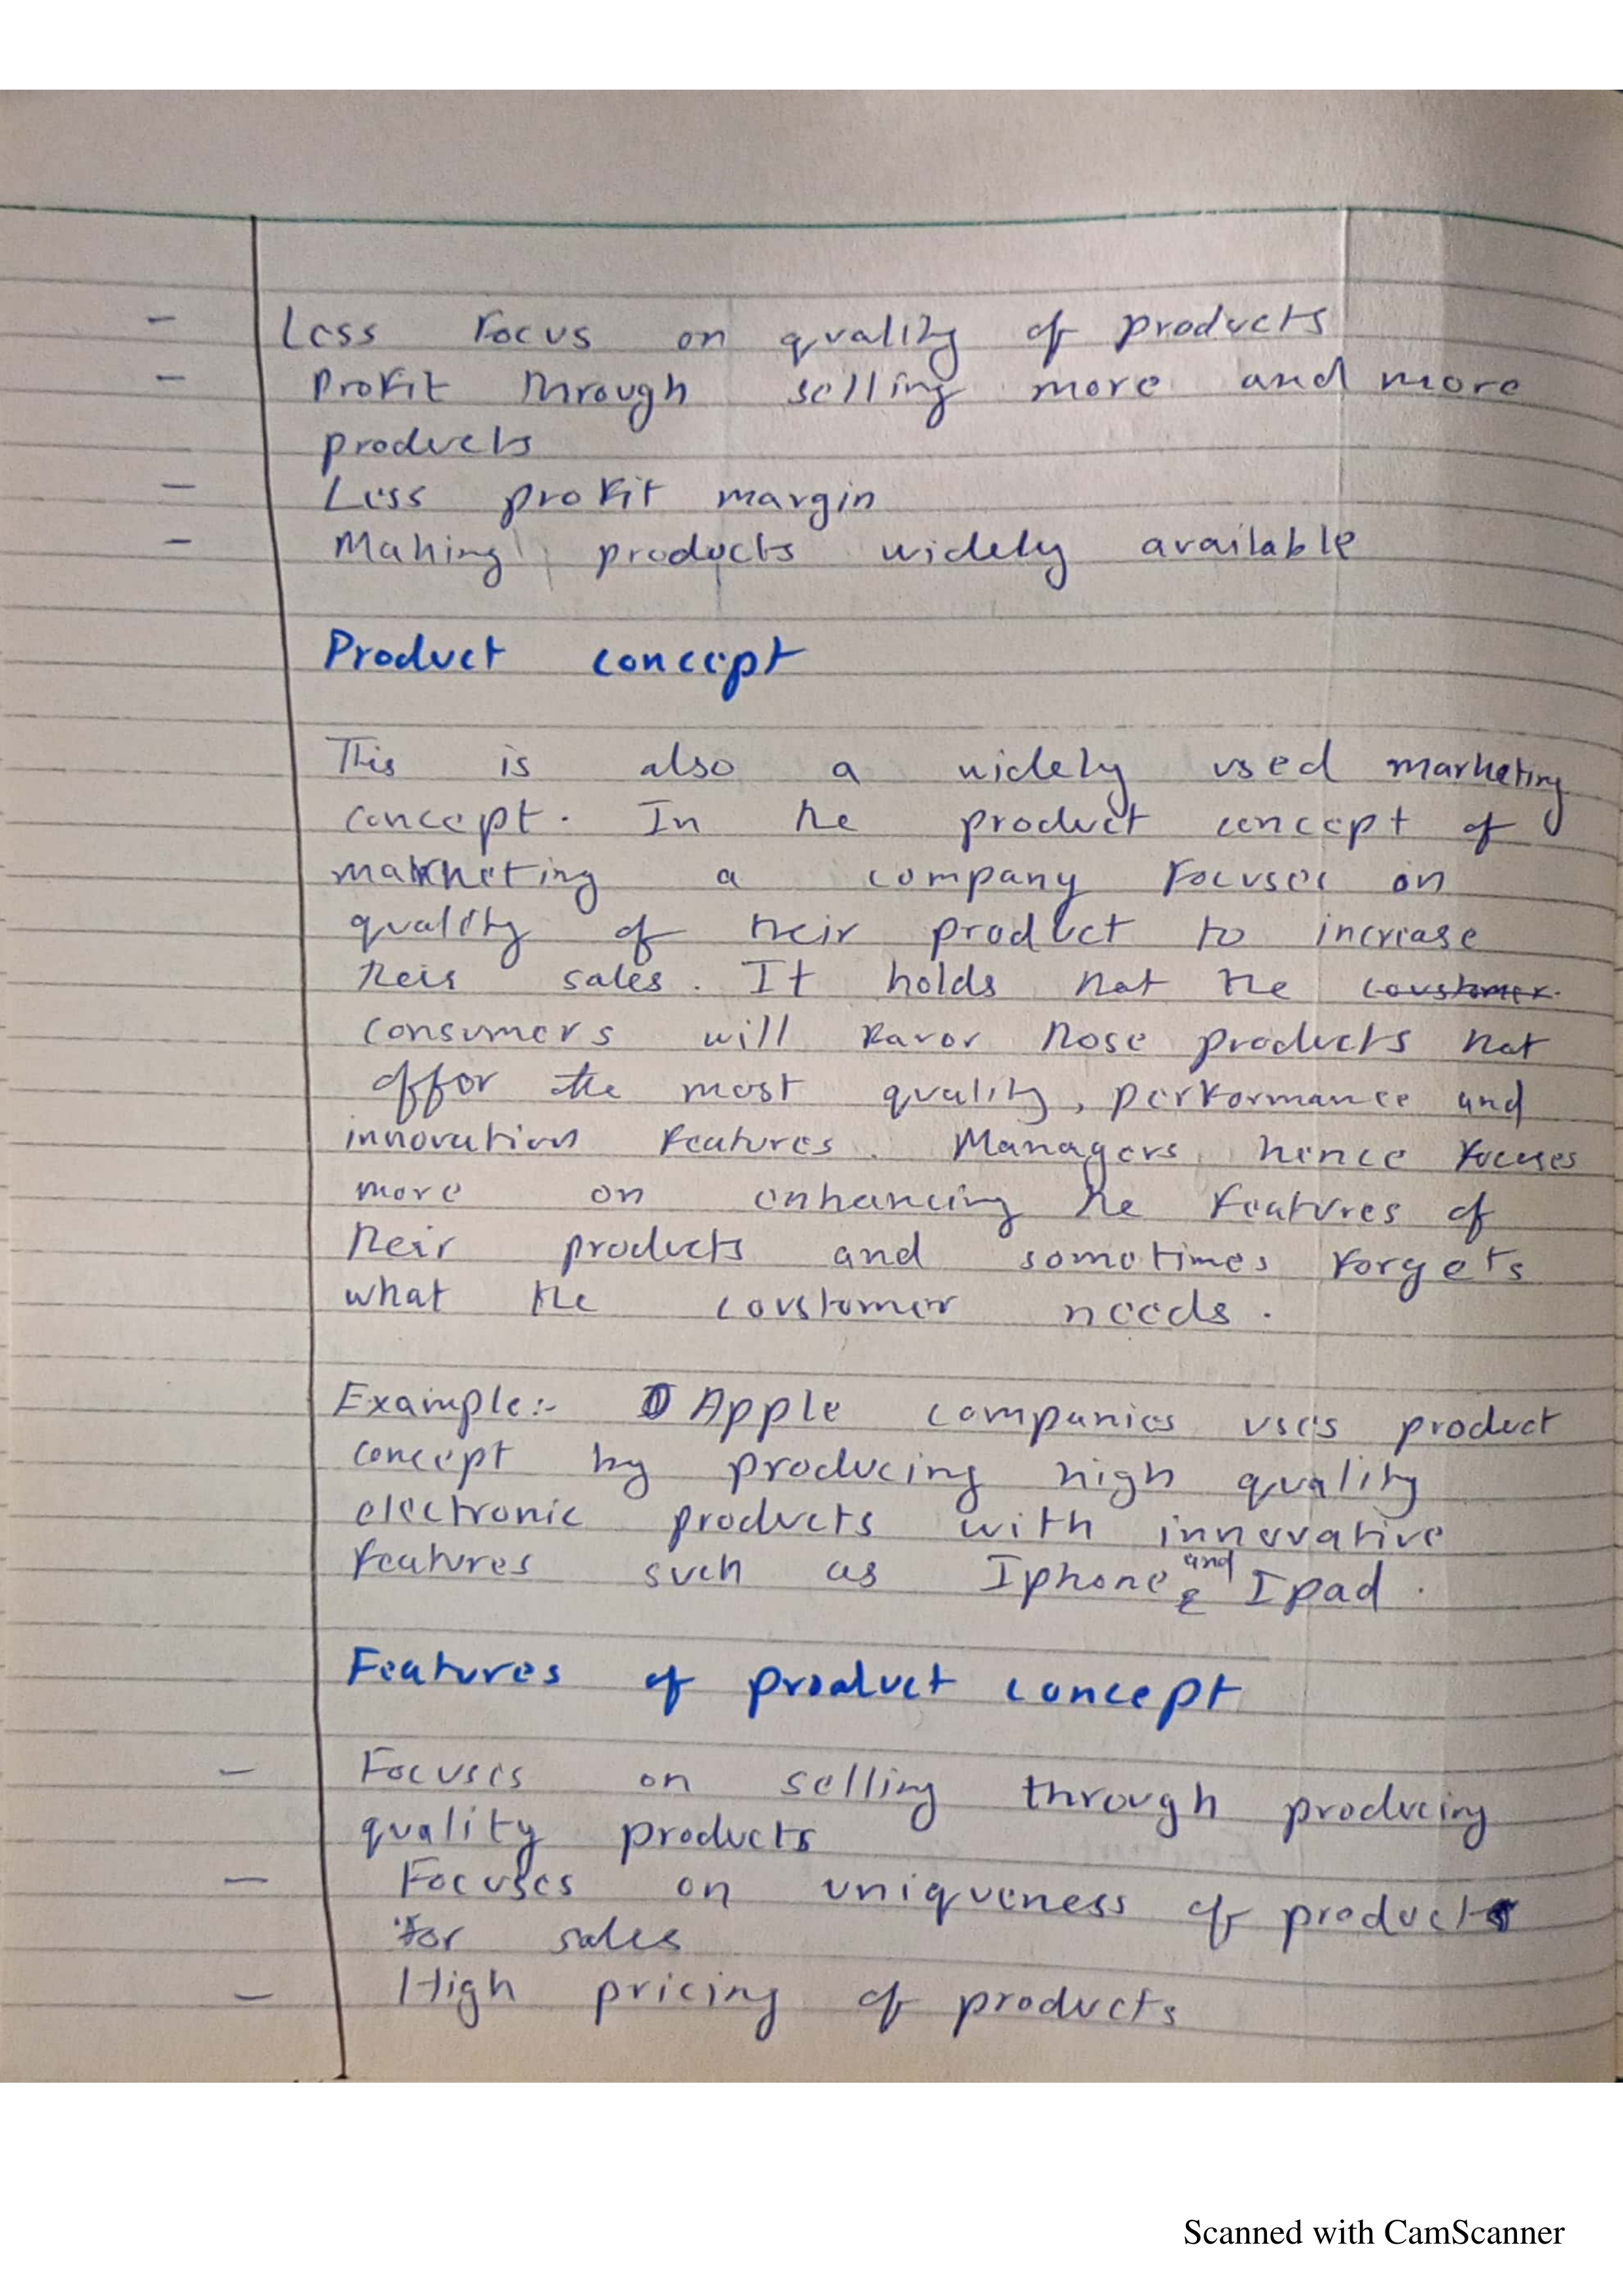 - Less focus on quality of products
- Profit through selling more and more
products
- Less profit margin
- Making products widely available
Product concept
This is also a widely used marketing
concept. In the product concept of
marketing a company focuses on
quality of their product to increase
their sales. It holds that the coustomer
consumers will favor those products that
offor the most quality, performance and
innovation features. Managers hence focuses
more on enhancing the features of
their products and sometimes forgets
what the coustomer needs.
Example:- Apple companies uses product
concept by producing high quality
electronic products with innovative
features such as Iphone and & Ipad.
Features of product concept
- Focuses on selling through producing
quality products
- Focuses on uniqueness of products
for sales
- High pricing of products
Scanned with CamScanner